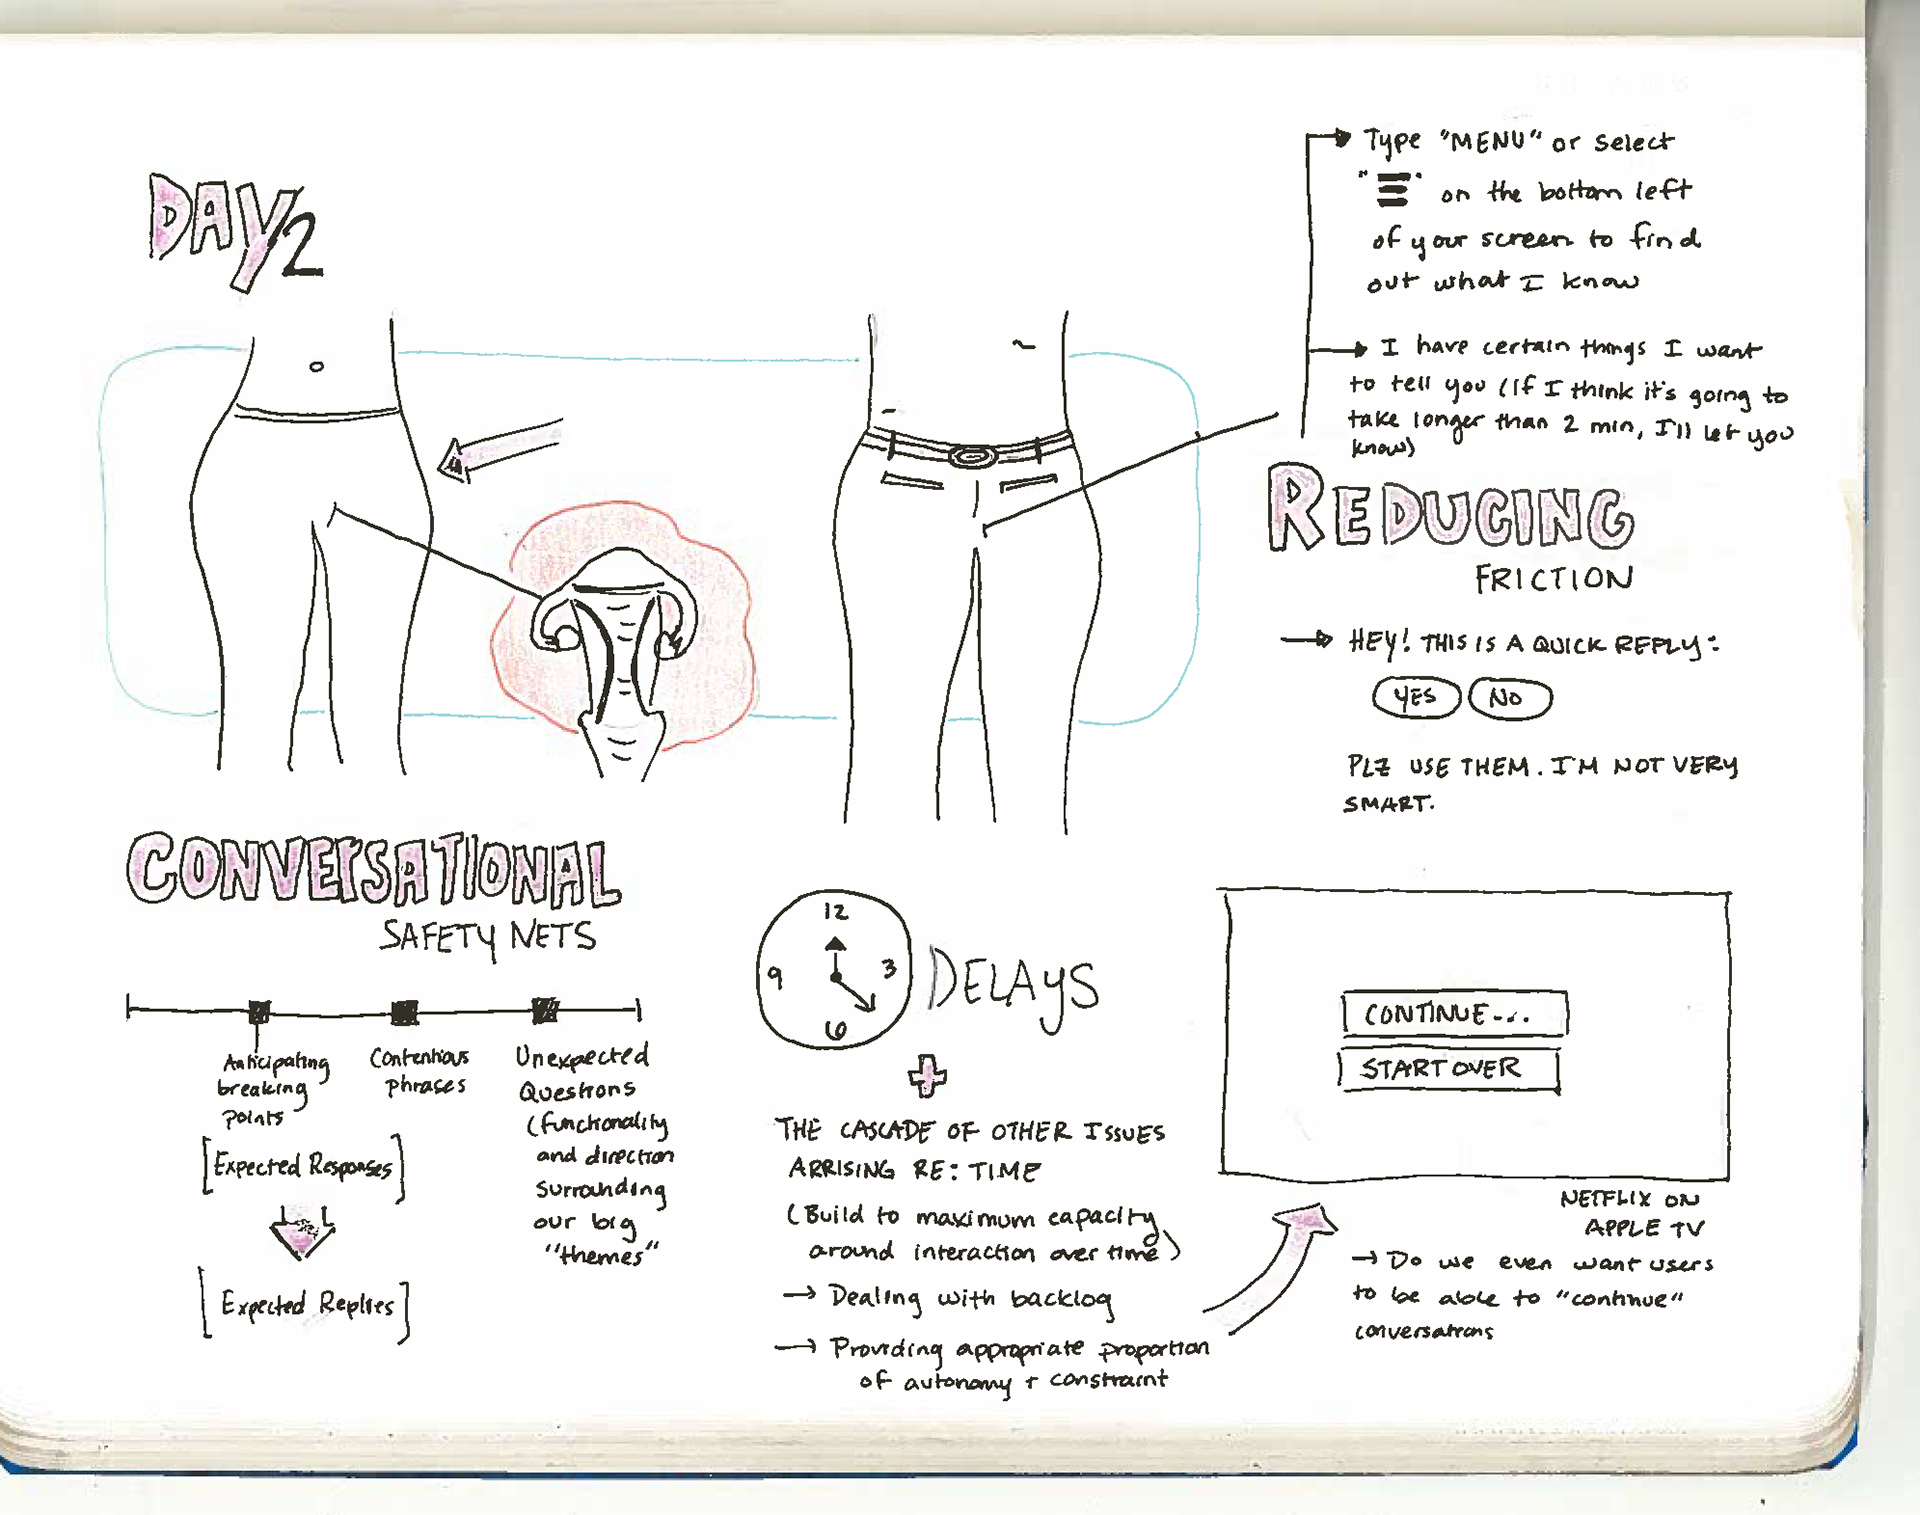 DAY 2
Type "MENU" or select
"☰" on the bottom left
of your screen to find
out what I know
I have certain things I want
to tell you (If I think it's going to
take longer than 2 min, I'll let you
know)
REDUCING
FRICTION
HEY! THIS IS A QUICK REPLY:
YES NO
PLZ USE THEM. I'M NOT VERY
SMART.
CONVERSATIONAL
SAFETY NETS
Anticipating
breaking
points
[Expected Responses]
[Expected Replies]
Contentious
phrases
Unexpected
Questions
(functionality
and direction
surrounding
our big
"themes"
12
3
6
9
DELAYS
+
THE CASCADE OF OTHER ISSUES
ARRISING RE: TIME
(Build to maximum capacity
around interaction over time)
→ Dealing with backlog
→ Providing appropriate proportion
of autonomy + constraint
CONTINUE...
START OVER
NETFLIX ON
APPLE TV
→ Do we even want users
to be able to "continue"
conversations